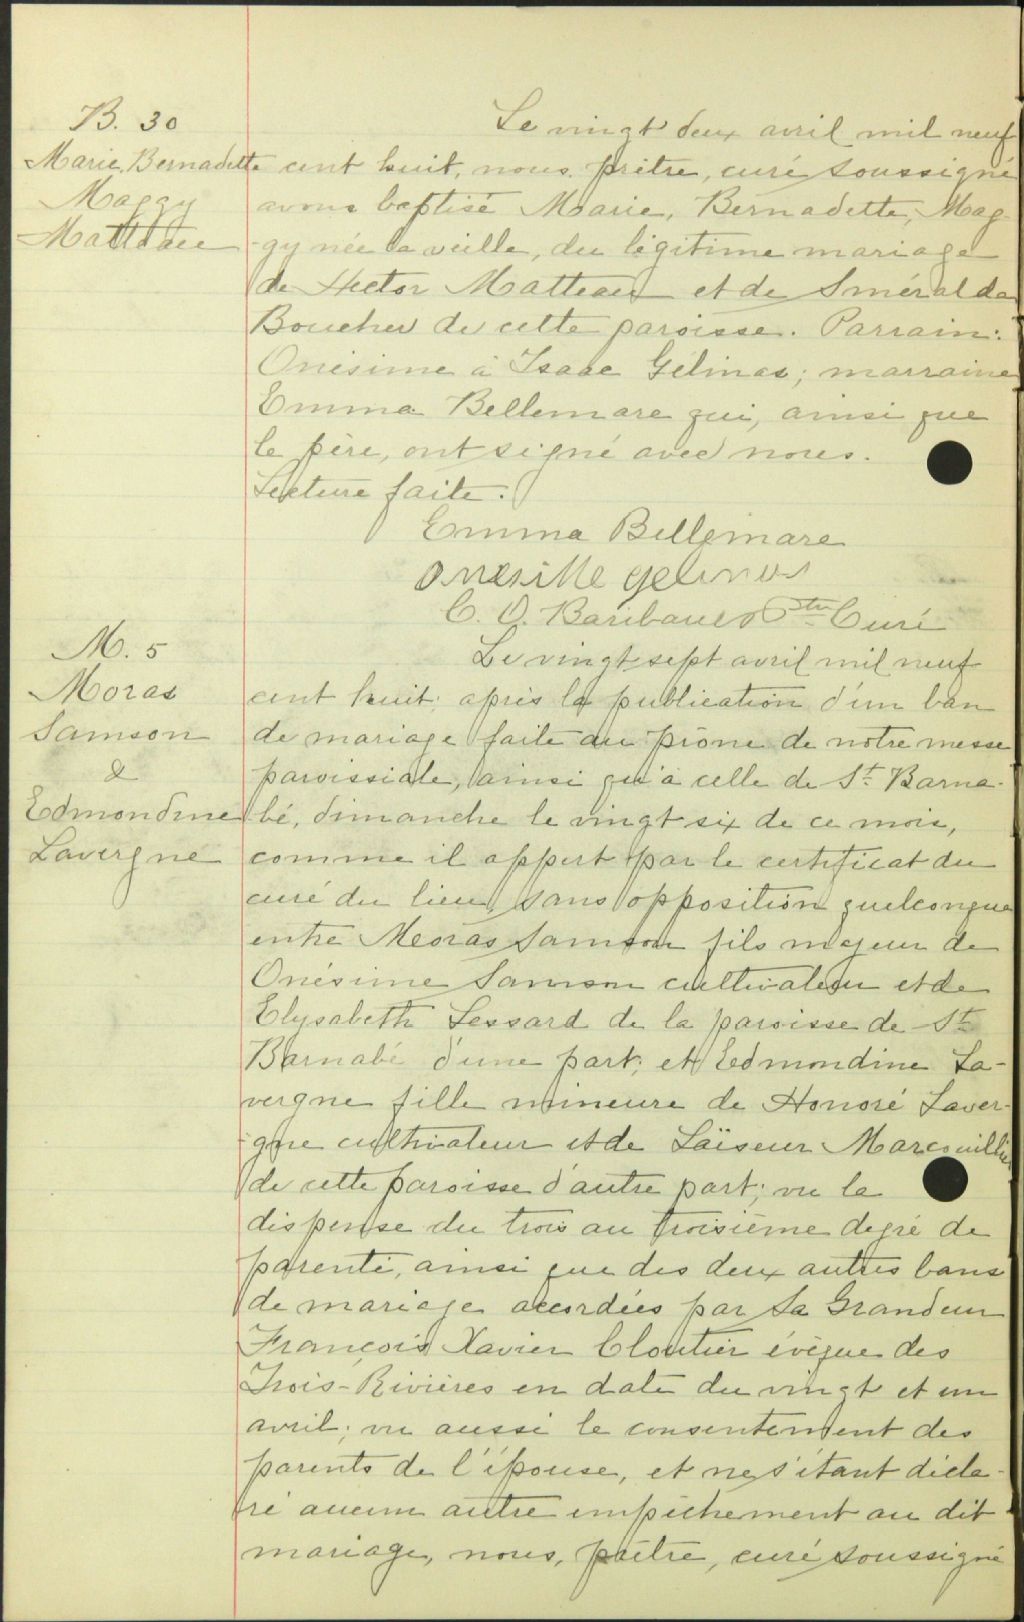 B. 30
Marie Bernadette
Maggy
Matteau
Le vingt deux avril mil neuf
cent huit, nous, prêtre, curé soussigné
avons baptisé Marie, Bernadette, Mag-
gy née la veille, du légitime mariage
de Hector Matteau et de Sméralda
Boucher de cette paroisse. Parrain:
Onésime à Isaac Gélinas; marraine
Emma Bellemare qui, ainsi que
le père, ont signé avec nous.
Lecture faite.
Emma Bellemare
Onesime gelinas
C. O. Baribeau Ptre Curé
M. 5
Moras
Samson
&
Edmondine
Lavergne
Le vingt sept avril mil neuf
cent huit, après la publication d'un ban
de mariage faite au prône de notre messe
paroissiale, ainsi qu'à celle de St. Barna-
bé, dimanche le vingt six de ce mois,
comme il appert par le certificat du
curé du lieu, sans opposition quelconque
entre Moras Samson fils majeur de
Onésime Samson cultivateur et de
Elysabeth Lessard de la paroisse de St
Barnabé d'une part; et Edmondine La-
vergne fille mineure de Honoré Laver-
gne cultivateur et de Marcouillier
de cette paroisse d'autre part; vu la
dispense du trois au troisième degré de
parenté, ainsi que des deux autres bans
de mariage accordées par Sa Grandeur
François Xavier Cloutier évêque des
Trois-Rivières en date du vingt et un
avril; vu aussi le consentement des
parents de l'épouse, et ne s'étant décla-
ré aucun autre empêchement au dit
mariage, nous, prêtre, curé soussigné